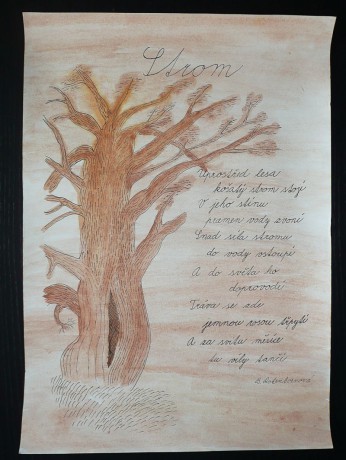 Strom
Uprostřed lesa
košatý strom stojí
V jeho stínu
pramen vody zvoní
Snad síla stromu
do vody vstoupí
A do světa ho
doprovodí
Tráva se zde
jemnou rosou třpytí
A za svitu měsíce
tu víly tančí